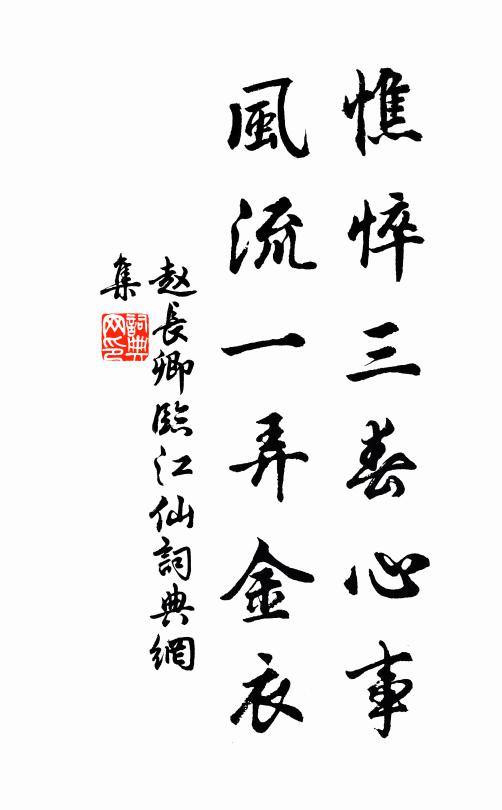 憔悴三春心事
風流一弄金衣
赵長卿臨江仙詞典網
集
詞典
网印